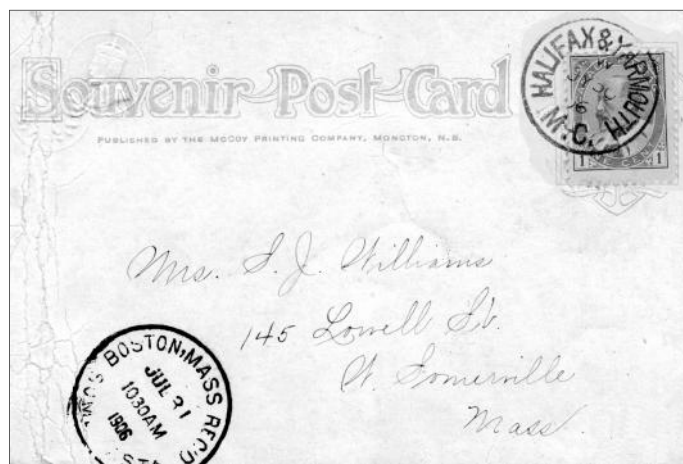 Souvenir Post Card
PUBLISHED BY THE MCCOY PRINTING COMPANY, MONCTON, N.B.
HALIFAX & YARMOUTH
M.C.
1 CENT 1
Mrs. S. J. Williams
145 Lowell St.
W. Somerville
Mass.
BOSTON, MASS REC'D
JUL 21
1030AM
1906